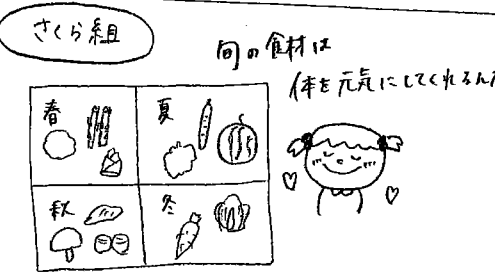 さくら組
旬の食材は
体を元気にしてくれるんだ
春
夏
秋
冬